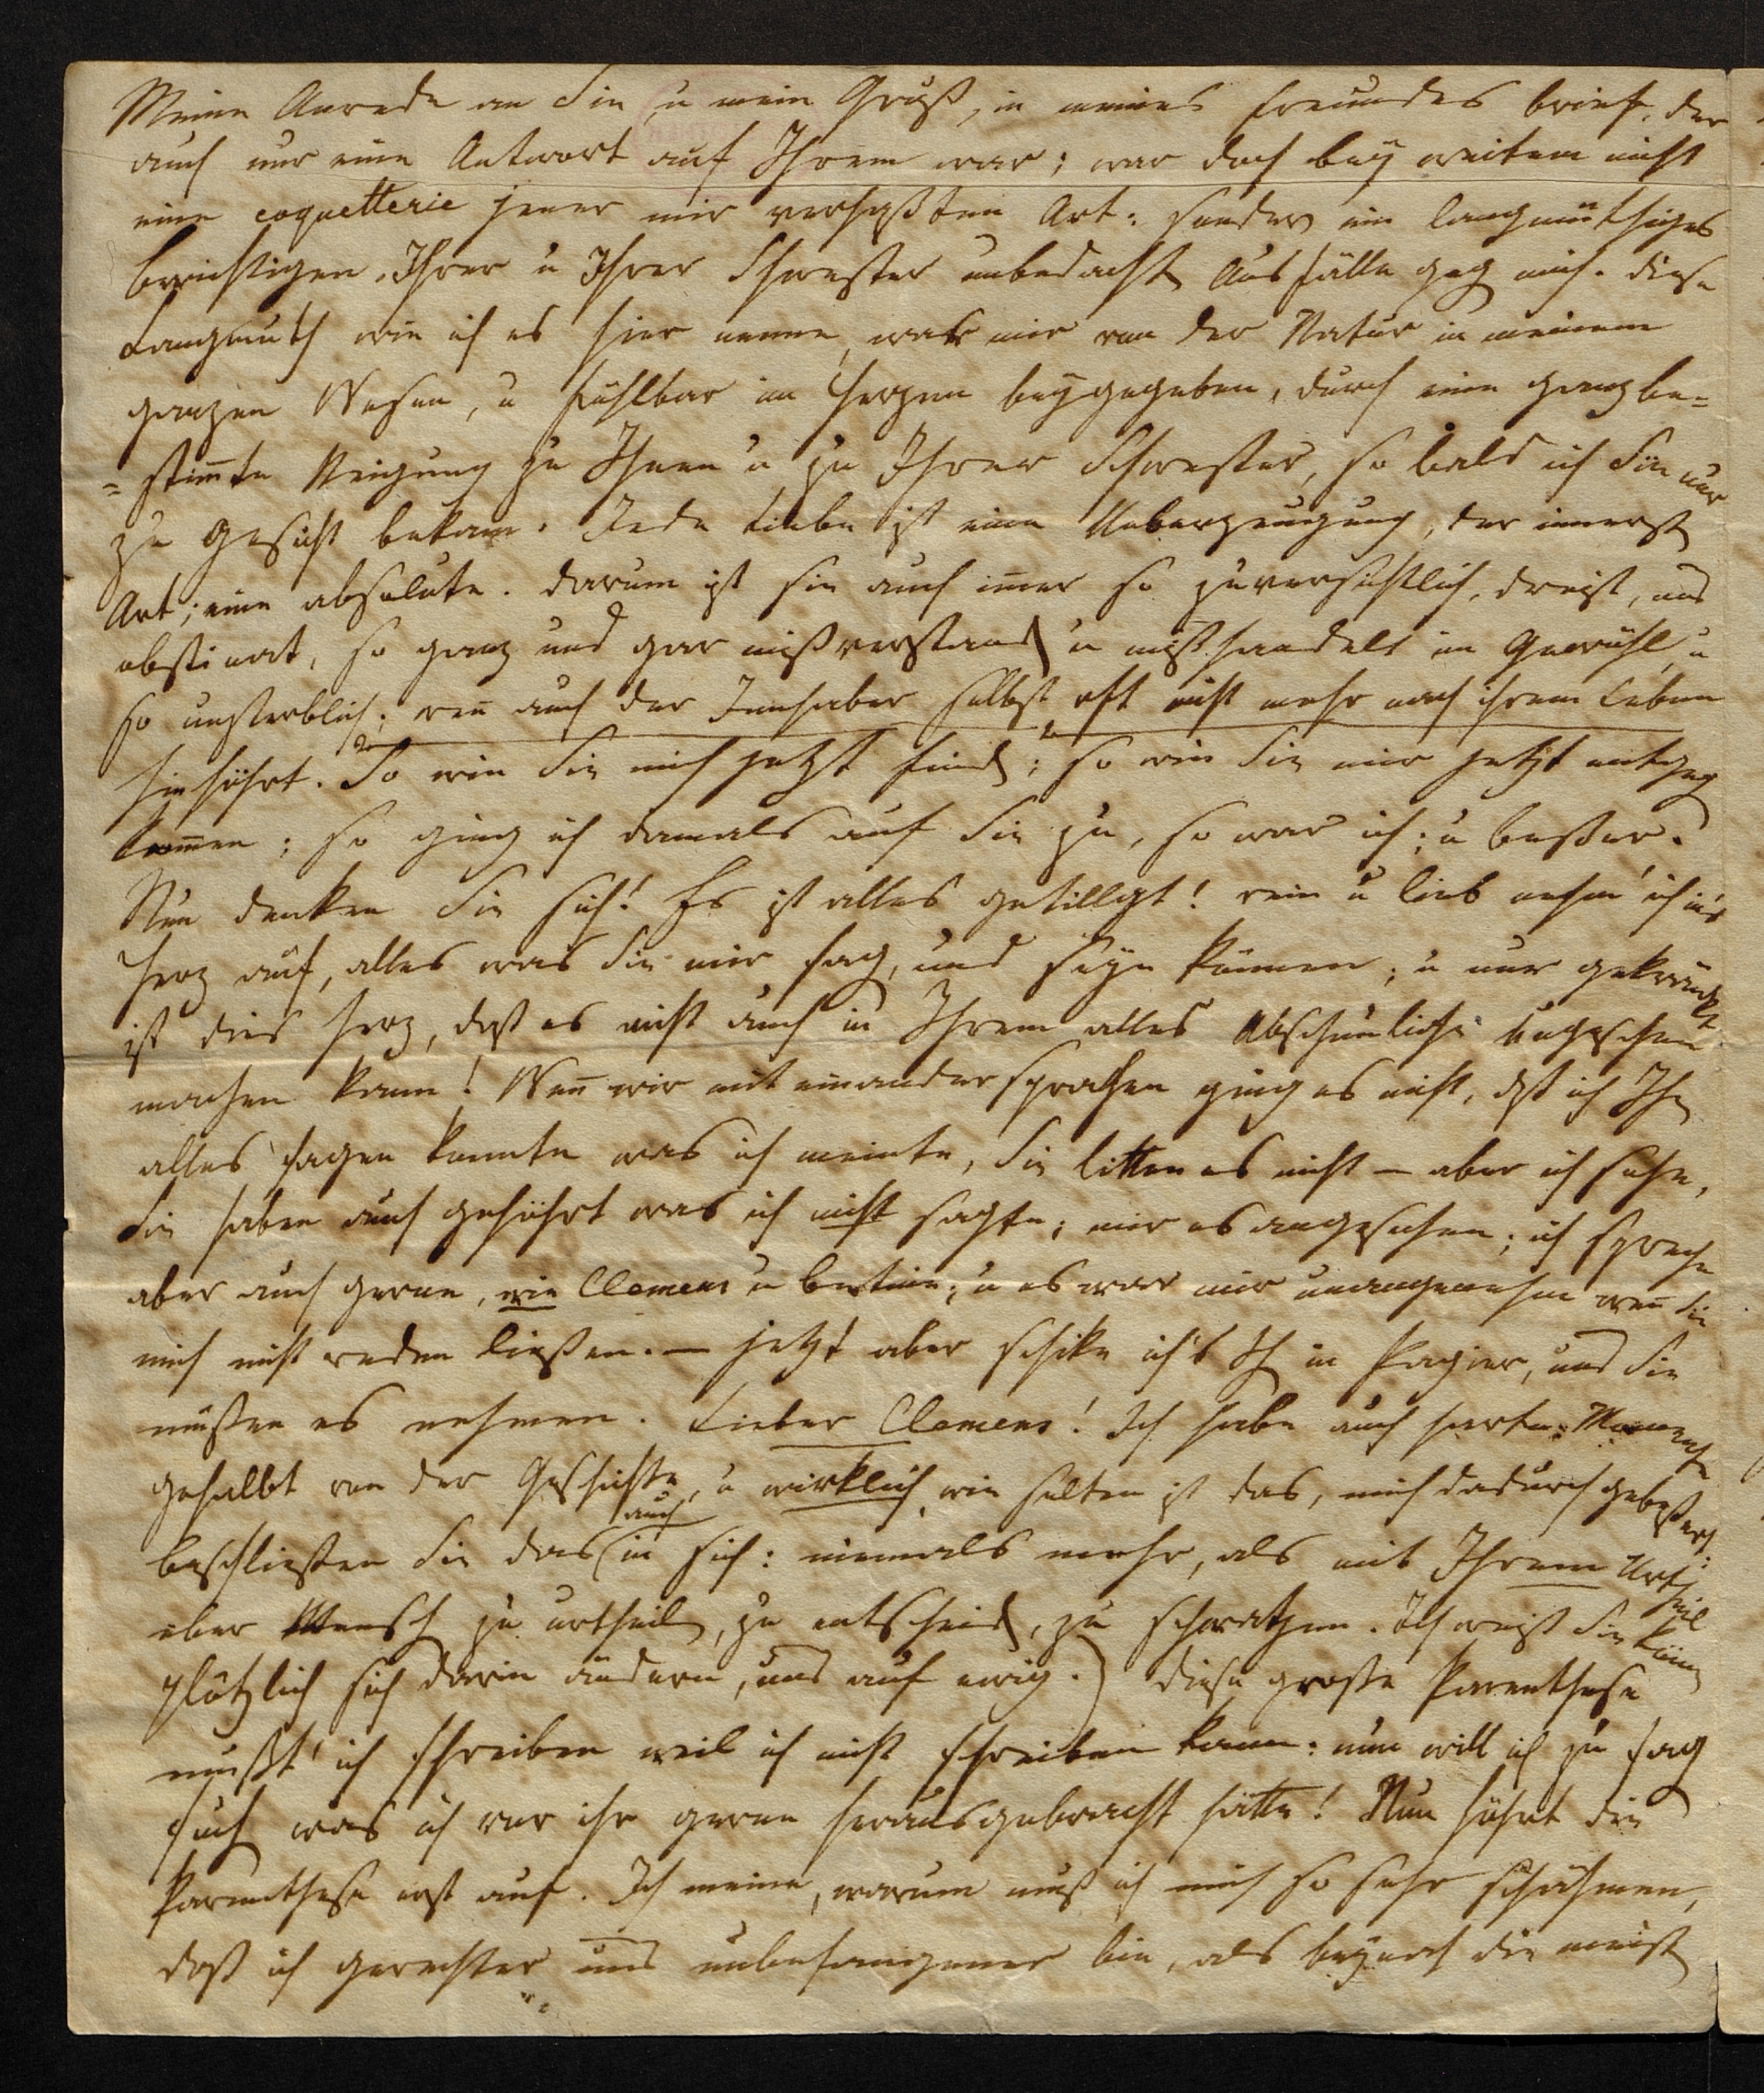 Meine Anrede an Sie, u mein Gruß, in meines Freundes brief, der
auch nur eine Antwort auf Ihrem war; war doch bey weitem nicht
eine coquetterie jener mir verhaßten Art: sonder ein langmüthiges
berichtigen, Ihrer u Ihrer Schwester unbedacht Ausfälle geg mich. diese
Langmuth wie ich es hier nenne, war mir von der Natur in meinem
ganzen Wesen, u fühlbar im Herzen beygegeben, durch eine ganz be-
=stim̅te Neigung zu Ihnen u zu Ihrer Schwester, so bald ich Sie nur
zu Gesicht bekam. Jede Liebe ist eine Ueberzeugung, der innerst
Art; eine absolute. darum ist sie auch im̅er so zuversichtlich, dreist, und
obstinat, so ganz und gar mißverstand u mißhandelt im Gewühl, u
so unsterblich; wen̅ auch der Innhaber selbst oft nicht mehr nach ihrem Leben
hinhört. So wie Sie mich jetzt find; so wie Sie mir jetzt entgeg
kom̅en; so ging ich damals auf Sie zu, so war ich; u beßer.
Nun denken Sie sich! Es ist alles getillgt! rein u lieb nehm' ich in's
Herz auf, alles was Sie mir sag, und seyn können; u nur gekränkt
ist dies Herz, daß es nicht auch in Ihrem alles Abscheuliche ungeschehen
machen kann! Wen̅ wir mit einander sprachen ging es nicht, dß ich Ihn
alles sagen konnte was ich meinte, Sie litten es nicht – aber ich sehe,
Sie haben auch gehört was ich nicht sagte; mir es angesehen; ich spreche
aber auch gerne, wie Clemens u bettine; u es war mir unangenehm wen̅ Sie
mich nicht reden ließen. – jetzt aber schike ich's Ih in Papier, und Sie
müßen es nehmen. Lieber Clemens! Ich habe auch harte Momente
gehabt von der Geschichte, u wirklich, wie selten ist das, mich dadurch gebeßert:
beschließen Sie das auch in sich: niemals mehr, als mit Ihrem Urtheil
über Mensch zu urtheil, zu entscheid, zu schwatzen. Ich weiß Sie könn
plötzlich sich darin ändern, und auf ewig.) diese große Parenthese
mußt' ich schreiben weil ich nicht schreiben kann: nun will ich zu sag
such was ich vor ihr gerne herausgebracht hätte! Nun höhrt die
Parenthese erst auf. Ich meine, warum muß ich mich so sehr schähmen,
daß ich gerechter und unbefangener bin, als beynah die meist